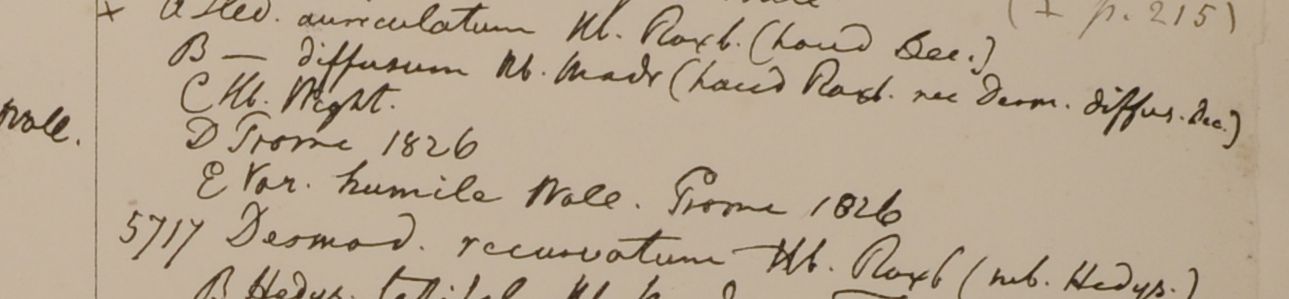 (+ p. 215)
x A Hed. auriculatum Hb. Roxb. (haud Dec.)
B — diffusum Hb. Madr (haud Roxb. nec Desm. diffus. Dec.)
C Hb. Wight.
Wall.
D Prome 1826
E Var. humile Wall. Prome 1826
5717 Desmod. recurvatum Hb. Roxb (sub. Hedys.)
B Hedys. Hb.